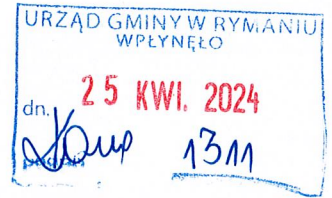 URZĄD GMINY W RYMANIU
WPŁYNĘŁO
dn. 25 KWI. 2024
1311